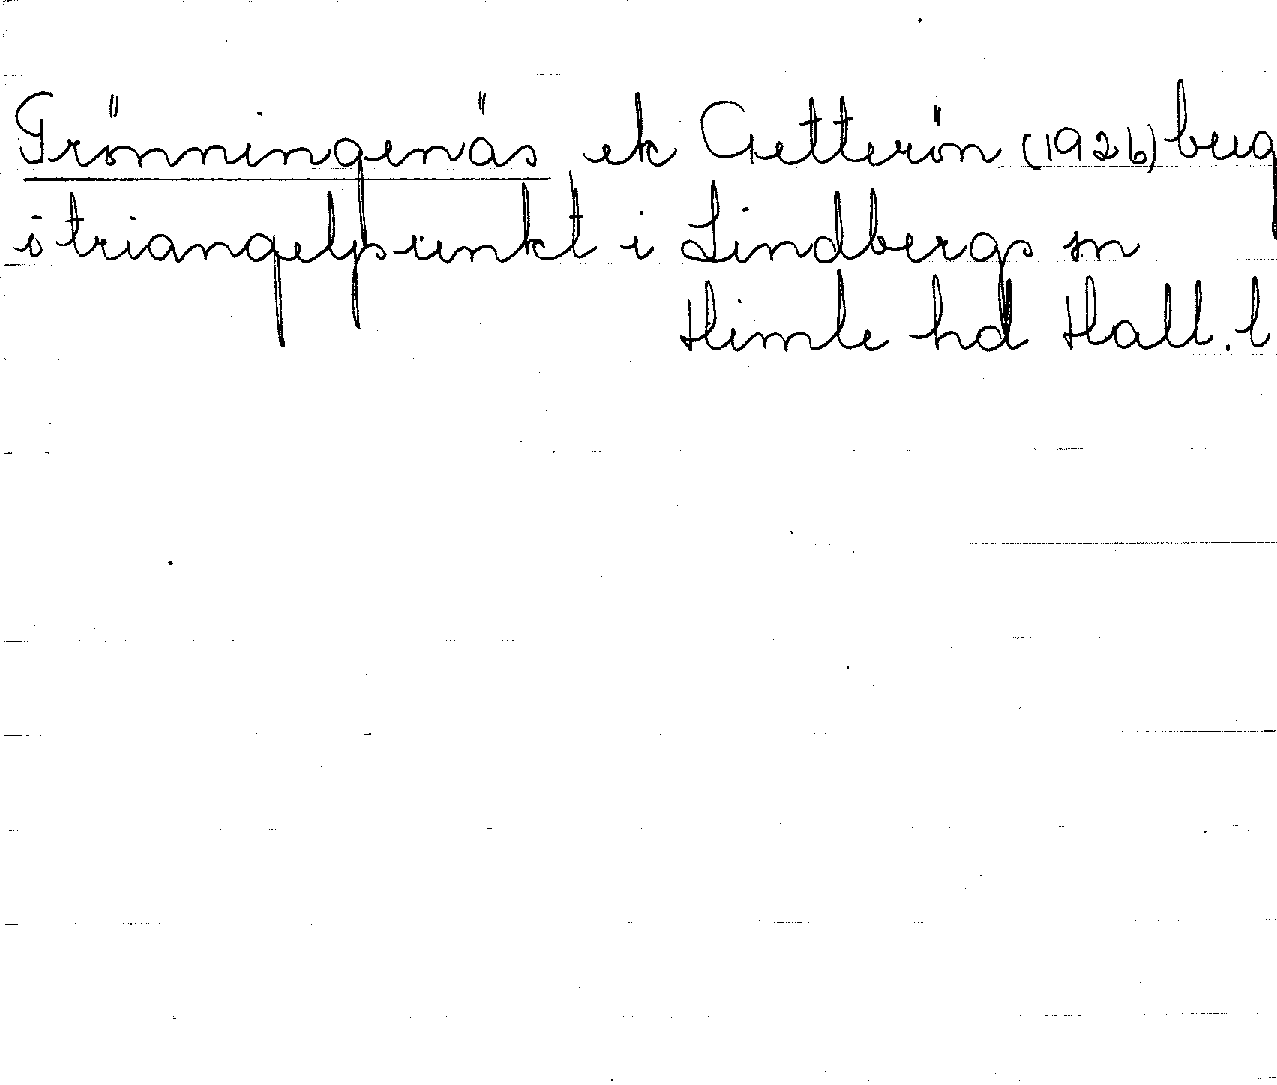 Grönningenäs ek Getterön (1926) berg
o triangelpunkt i Lindbergs sn
Himle hd Hall. l